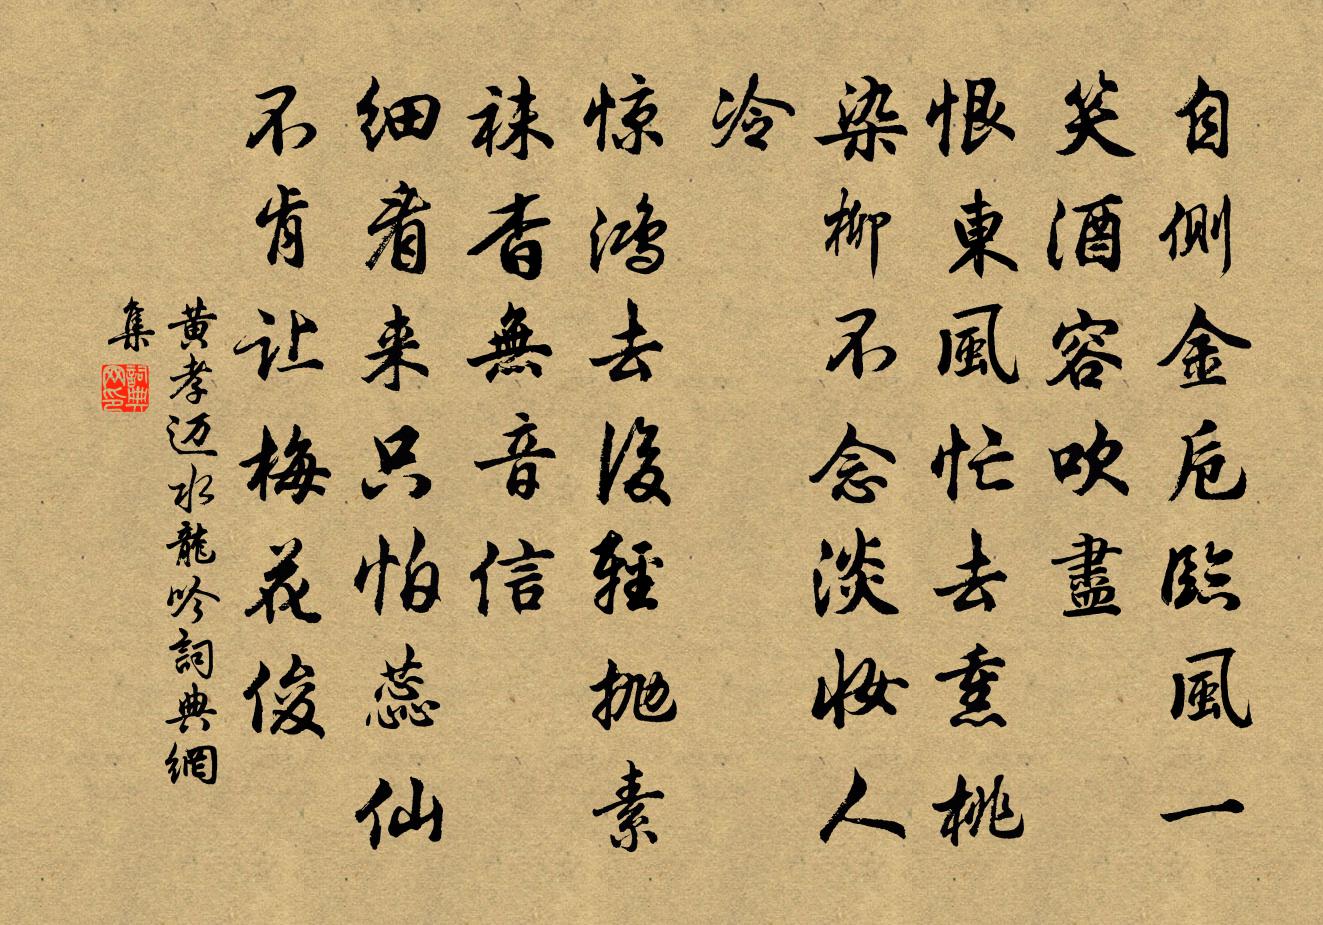 自側金卮臨風一
笑酒容吹盡
恨東風忙去熏桃
染柳不念淡妝人
冷
惊鴻去後輕抛素
袜杳無音信
细看来只怕蕊仙
不肯让梅花俊
黄孝迈水龍吟詞典網
集
詞典
网印